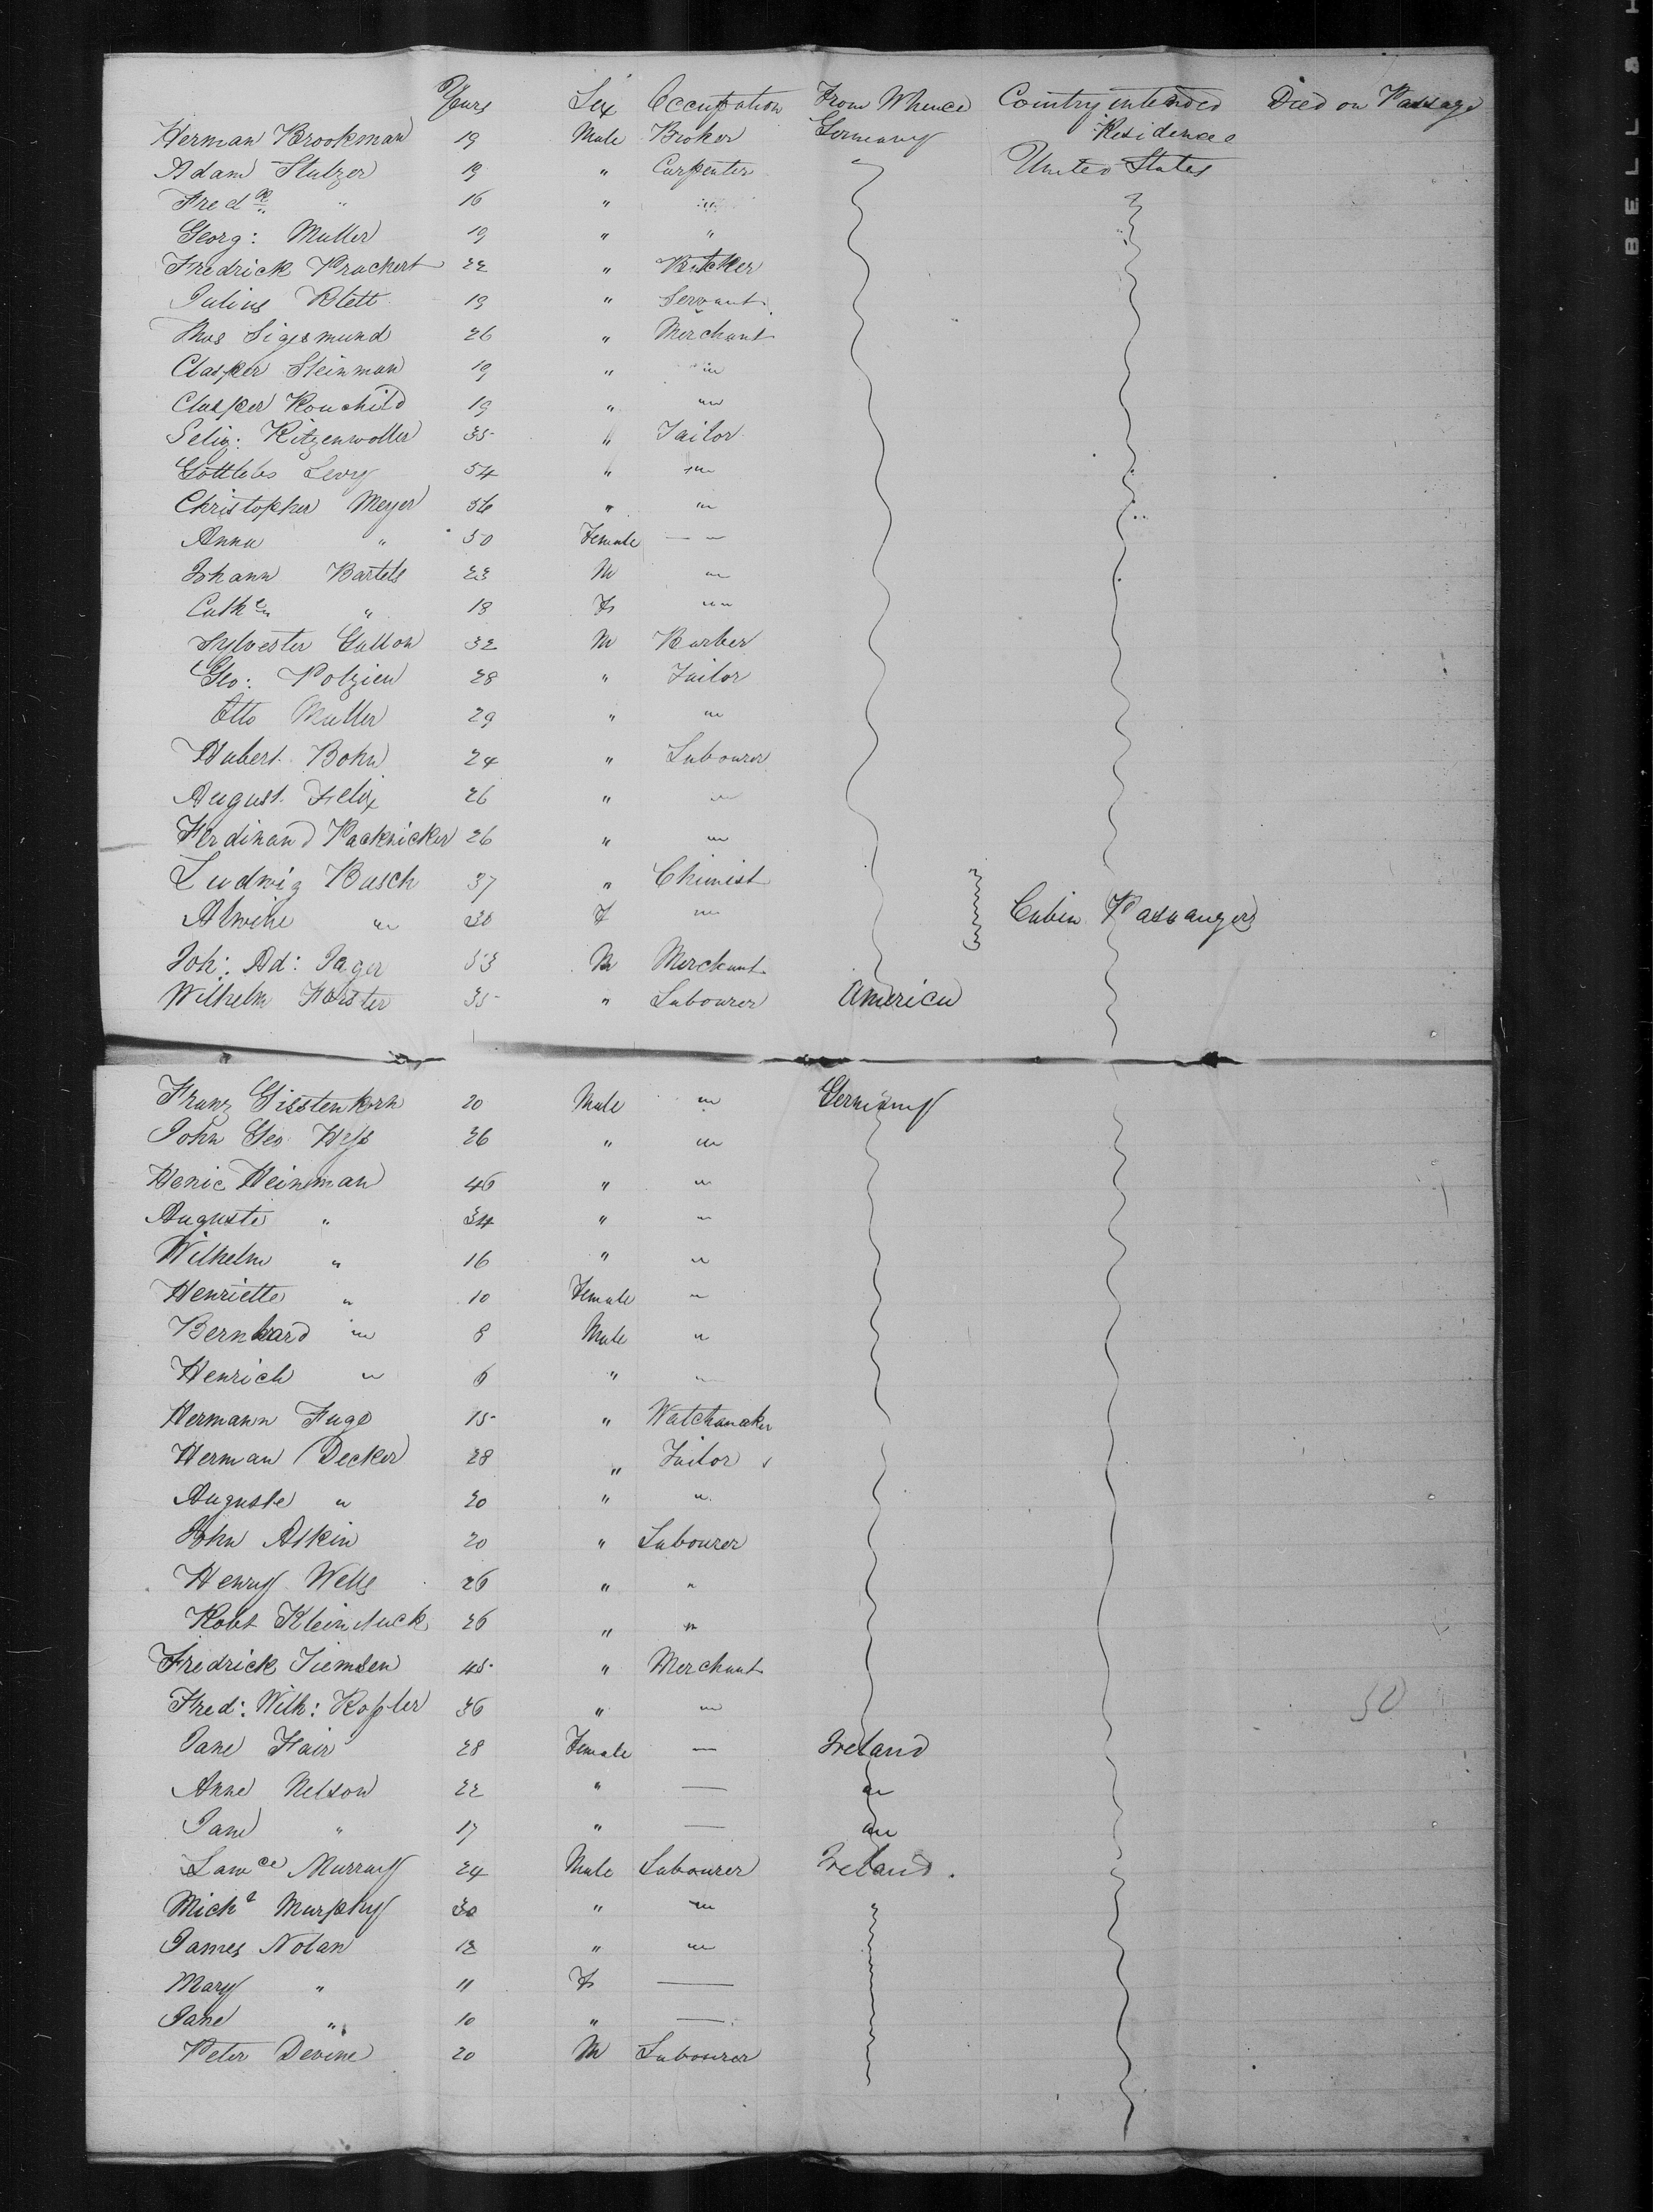 Years Sex Occupation From Whence Country intended Died on Passage
Residence
Herman Brookman 19 Male Broker Germany
Adam Stulzer 19 " Carpenter United States
Fredk " 16 " "
Georg: Muller 19 " "
Fredrick Prachert 22 " Butcher
Julius Klett 19 " Servant
Thos Sigesmund 26 " Merchant
Clasper Steinman 19 " "
Clasper Rouchild 19 " "
Selig: Kitzenwoller 35 " Tailor
Gottlebs Levy 54 " "
Christopher Meyer 56 " "
Anna " 50 Female — "
Johann Bartels 23 M "
Cathe " 18 F "
Sylvester Gallon 32 M Barber
Geo: Polzien 28 " Tailor
Otto Muller 29 " "
Hubert Bohn 24 " Labourer
August Felix 26 " "
Ferdinand Packnicker 26 " "
Ludwig Busch 37 " Chimist
Alwine " 30 F " Cabin Passangers
Joh: Ad: Jager 53 M Merchant
Wilhelm Forster 35 " Labourer America
Franz Gisstenkorn 20 Male " Germany
John Geo Hess 26 " "
Henic Heinman 46 " "
Auguste " 34 " "
Wilhelm " 16 " "
Henriette " 10 Female "
Bernhard " 8 Male "
Henrich " 6 " "
Hermann Fuge 15 " Watchmaker
Herman Decker 28 " Tailor
Auguste " 20 " "
John Askin 20 " Labourer
Henry Wells 26 " "
Robt Kleinstuck 26 " "
Fredrick Tiemsen 45 " Merchant
Fred: Wilh: Kossler 36 " " 50
Jane Fair 28 Female — Ireland
Anne Nelson 22 " — "
Jane " 17 " — "
Lawce Murray 24 Male Labourer Ireland.
Michl Murphy 30 " " "
James Nolan 12 " "
Mary " 11 F —
Jane " 10 " —
Peter Devine 20 M Labourer